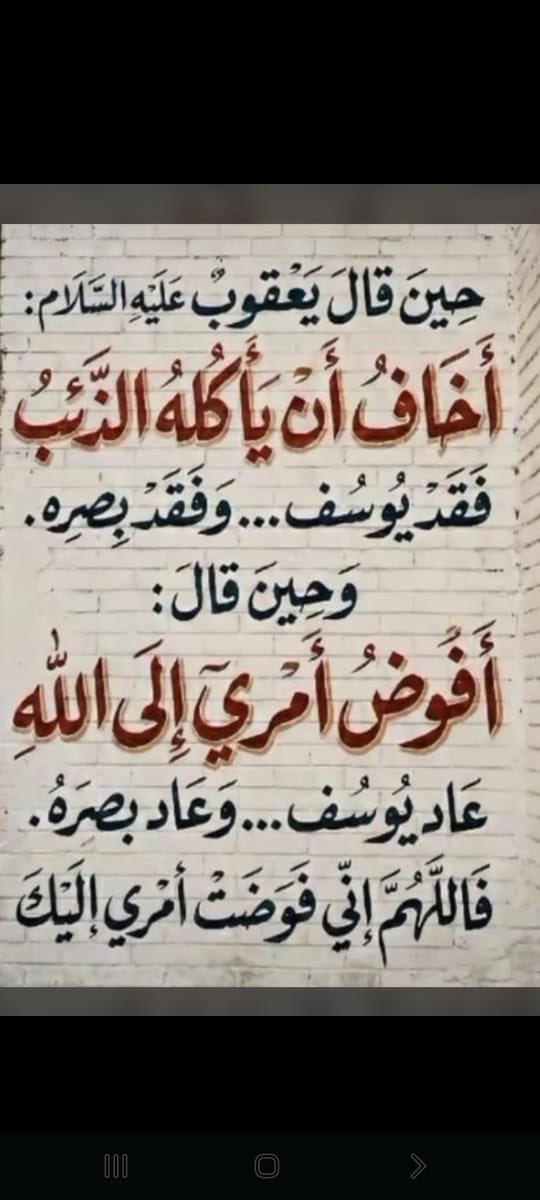 حِينَ قَالَ يَعْقوبٌ عَلَيْهِ السَّلَام:
أَخَافُ أَنْ يَأْكُلهُ الذَّئبُ
فَقَدْ يُوسُف...وَفَقَدْ بِصِرِه.
وَحِينَ قَالَ:
أَفُوضُ أَمْرِيَ إِلَى اللّٰهِ
عَاد يُوسُف...وَعَاد بصَرَهُ.
فَاللَّهُمَّ إِنّي فَوَضَتْ أمْري إلَيْكَ